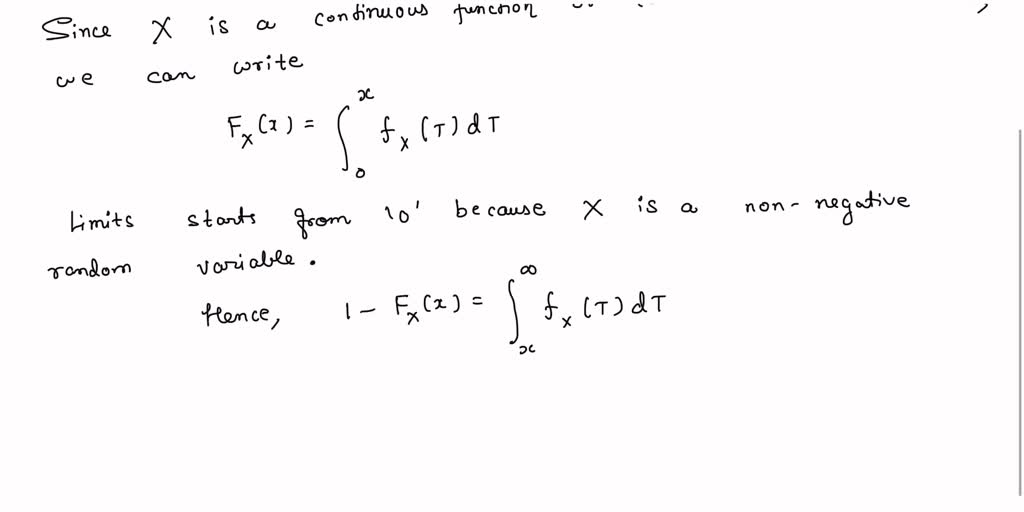 Since X is a continuous function
we can write
F_X(x) = ∫_0^x f_X(T)dT
Limits starts from '0' because X is a non-negative
random variable.
Hence, 1 - F_X(x) = ∫_x^∞ f_X(T)dT